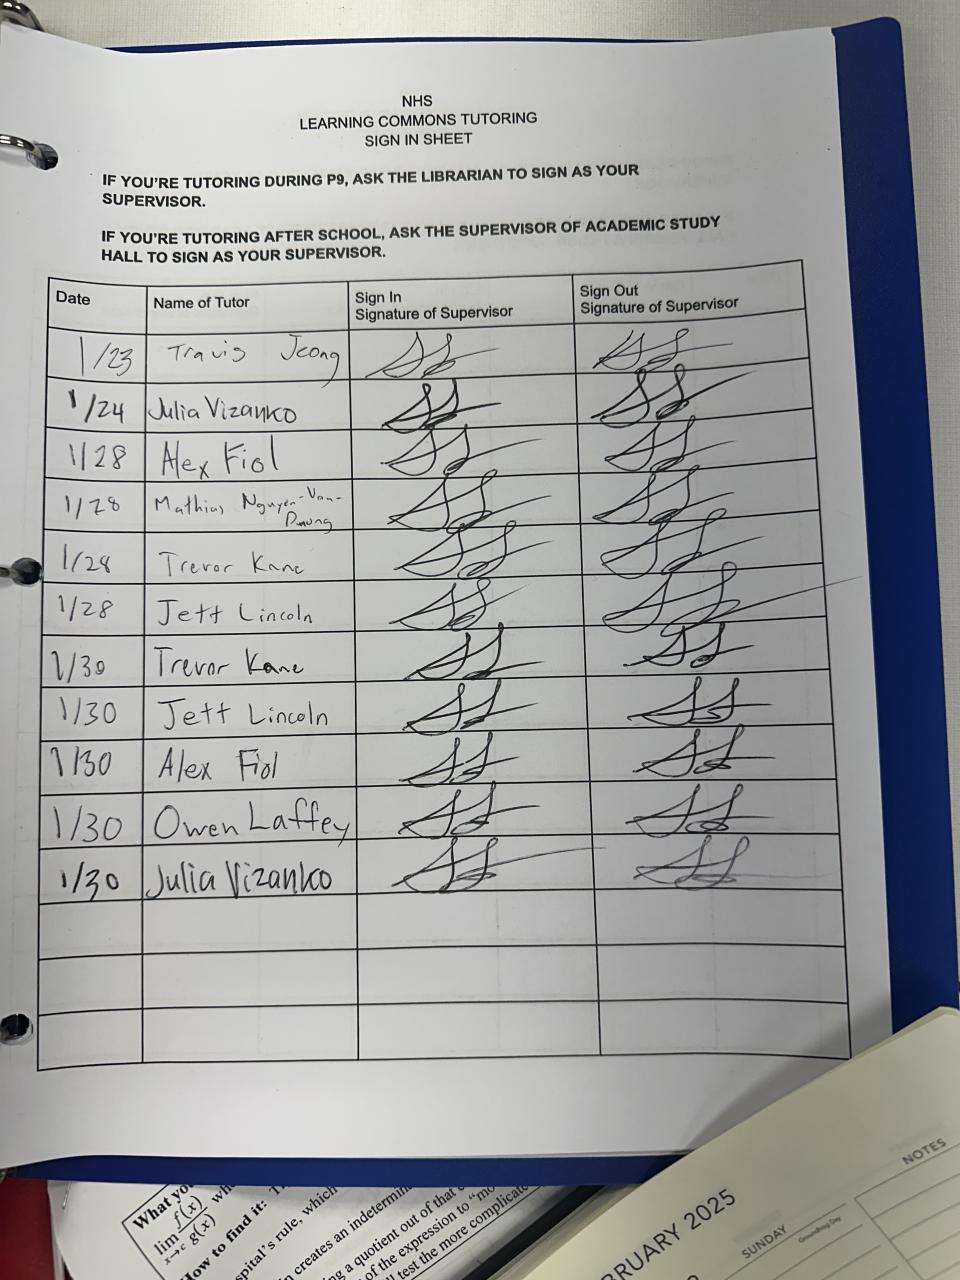 NHS
LEARNING COMMONS TUTORING
SIGN IN SHEET
IF YOU'RE TUTORING DURING P9, ASK THE LIBRARIAN TO SIGN AS YOUR
SUPERVISOR.
IF YOU'RE TUTORING AFTER SCHOOL, ASK THE SUPERVISOR OF ACADEMIC STUDY
HALL TO SIGN AS YOUR SUPERVISOR.
Date Name of Tutor Sign In Signature of Supervisor Sign Out Signature of Supervisor
1/23 Travis Jeong
1/24 Julia Vizanko
1/28 Alex Fiol
1/28 Mathias Nguyen-Van-
Duong
1/28 Trevor Kane
1/28 Jett Lincoln
1/30 Trevor Kane
1/30 Jett Lincoln
1/30 Alex Fiol
1/30 Owen Laffey
1/30 Julia Vizanko
What you
lim x→c f(x)/g(x) wh
How to find it:
spital's rule, which
n creates an indetermin
ng a quotient out of that
of the expression to "mo
ll test the more complicate
BRUARY 2025
NOTES
SUNDAY
Groundhog Day